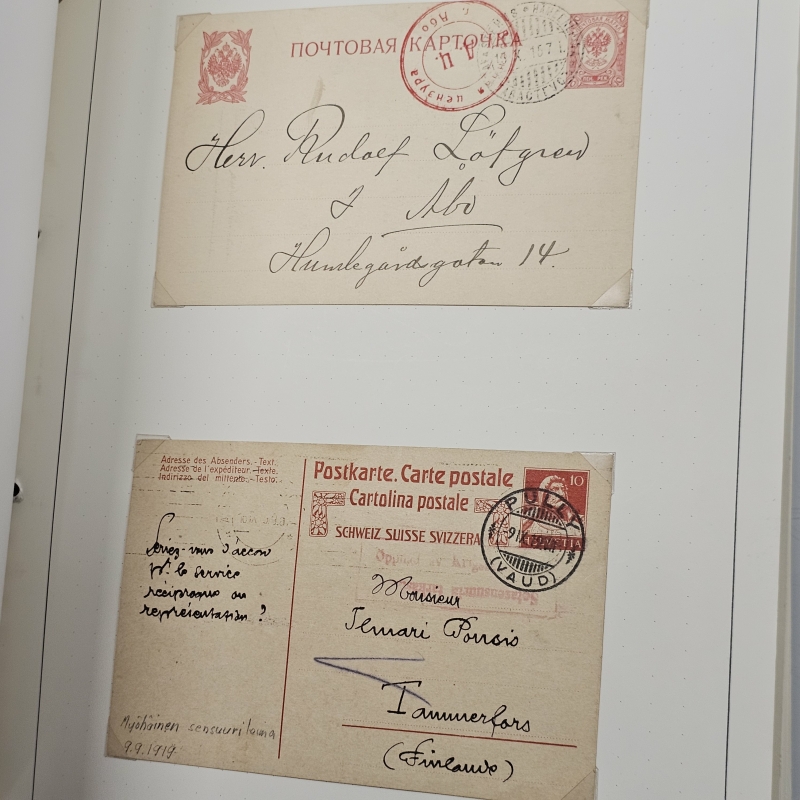 ПОЧТОВАЯ КАРТОЧКА
цензура
г. Або
Herr. Rudolf Löfgren
Åbo
Humlegårdsgatan 14.
Adresse des Absenders.-Text.
Adresse de l'expéditeur.-Texte.
Indirizzo del mittente.-Testo.
Postkarte. Carte postale
Cartolina postale
SCHWEIZ SUISSE SVIZZERA
10
PULLY
(VAUD)
Serez-vous d'accord
pr. le service
réciproque ou
représentation?
Monsieur
Ilmari
Tammerfors
(Finlande)
Myöhäinen sensuurileima
9.9.1919